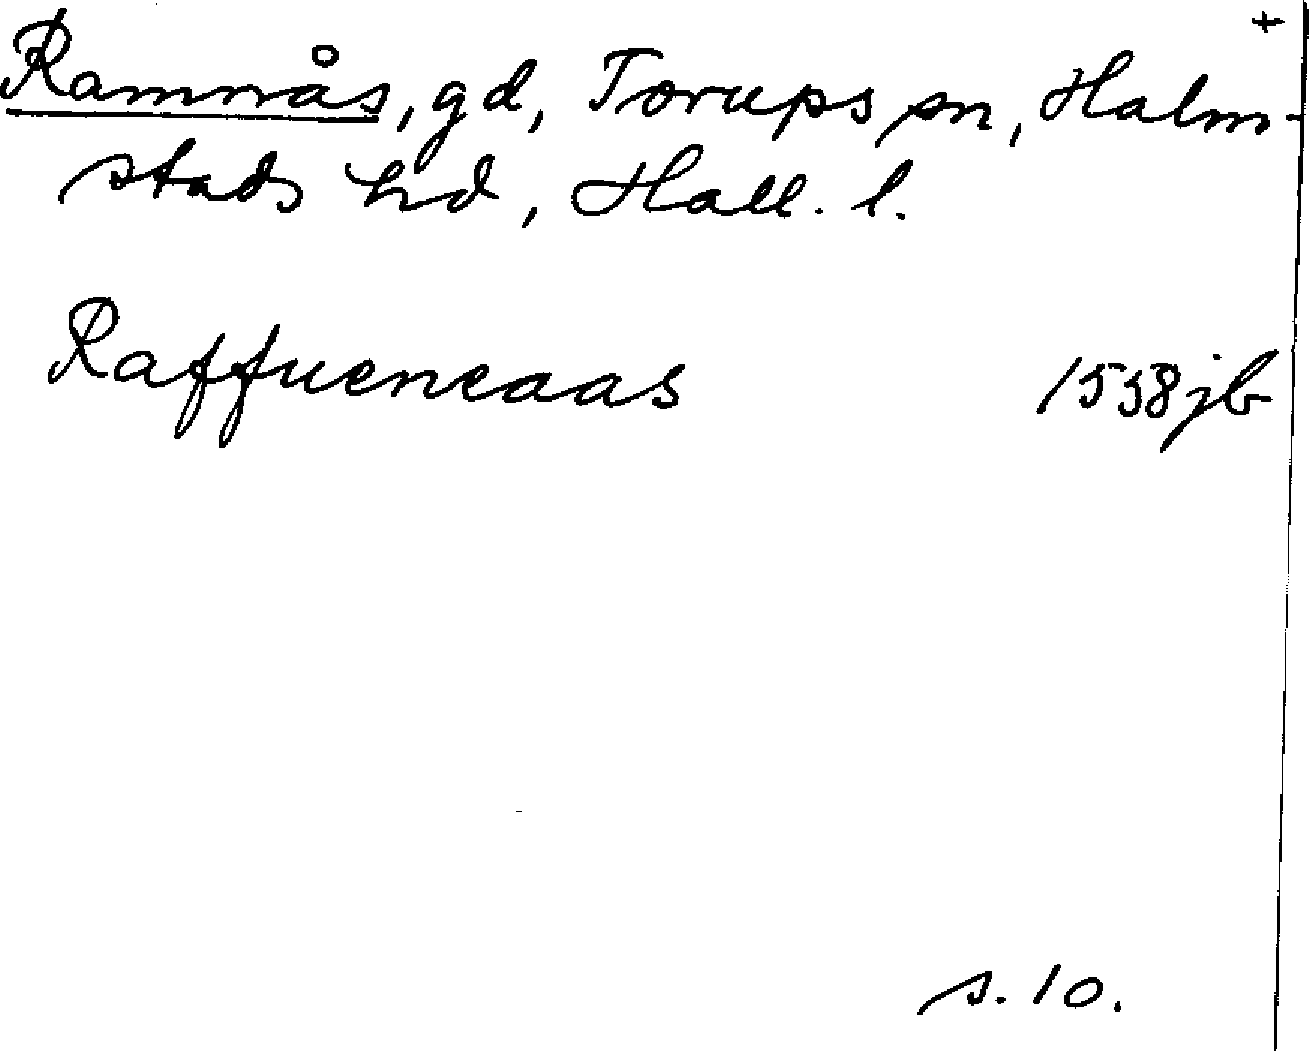 +
Ramnås, gd, Torups sn, Halm-
stads hd, Hall. l.
Raffueneaas 1558 jb
s. 10.